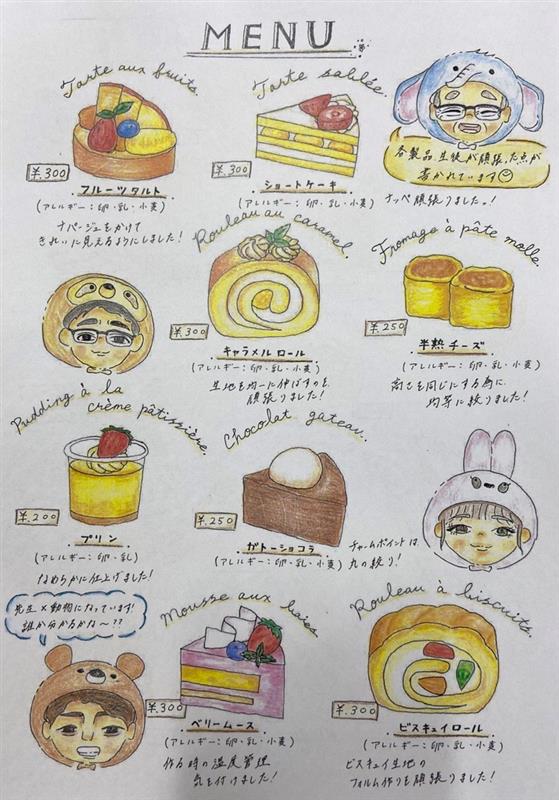 MENU
Tarte aux fruits.
¥.300
フルーツタルト
(アレルギー：卵・乳・小麦)
ナパージュをかけて
きれいに見えるようにしました！
Tarte sablée.
¥.300
ショートケーキ
(アレルギー：卵・乳・小麦)
ナッペ頑張りました。！
各製品、生徒が頑張った点が
書かれています☺
Rouleau au caramel.
¥.300
キャラメルロール
(アレルギー：卵・乳・小麦)
生地を均一に伸ばすのを
頑張りました！
Fromage à pâte molle.
¥.250
半熟チーズ
(アレルギー：卵・乳・小麦)
高さを同じにする為に
均等に絞りました！
Pudding à la
crème pâtissière.
¥.200
プリン
(アレルギー：卵・乳)
なめらかに仕上げました！
Chocolat gateau.
¥.250
ガトーショコラ
(アレルギー：卵・乳・小麦)
チャームポイントは
丸の絞り！
先生×動物になっています！
誰か分かるかな〜??
Mousse aux baies
¥.300
ベリームース
(アレルギー：卵・乳・小麦)
作る時の温度管理
気を付けました！
Rouleau à biscuits.
¥.300
ビスキュイロール
(アレルギー：卵・乳・小麦)
ビスキュイ生地の
フォルム作りを頑張りました！